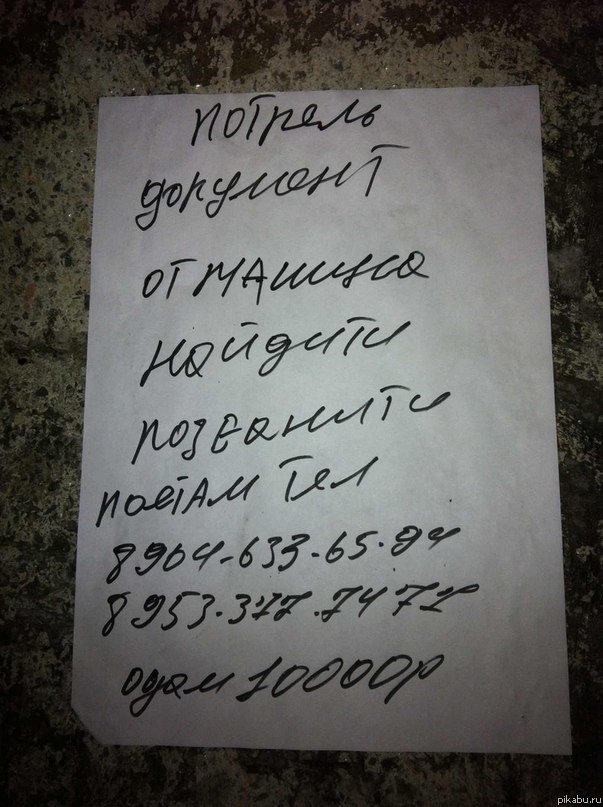 потрель
документ
от машина
найдити
розванити
поетам тел
8904-633-65-94
8953.377.74 71
одам 10000р
pikabu.ru